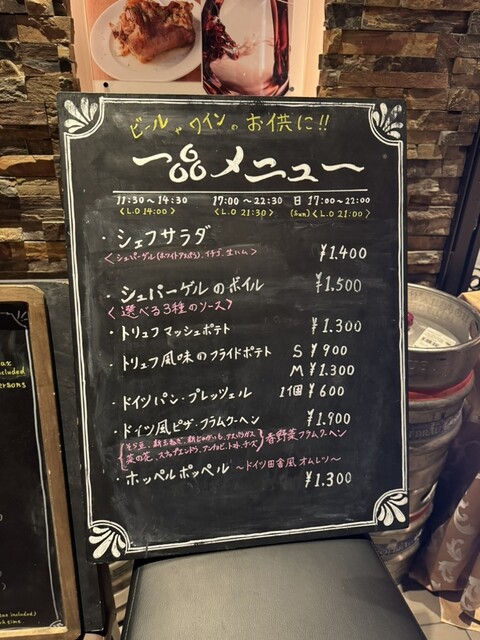 ビールやワインのお供に!!
一品メニュー
11:30～14:30 17:00～22:30 日 17:00～22:00
<L.O 14:00> <L.O 21:30> (Sun)<L.O 21:00>
・シェフサラダ ¥1.400
<シュパーゲル(ホワイトアスパラ)、イチゴ、生ハム>
・シュパーゲルのボイル ¥1.500
<選べる3種のソース>
・トリュフマッシュポテト ¥1.300
・トリュフ風味のフライドポテト S ¥900
M ¥1.300
・ドイツパン・プレッツェル 1個 ¥600
・ドイツ風ピザ・フラムクーヘン ¥1.900
そら豆、新玉ねぎ、新じゃがいも、アスパラガス
菜の花、スナップエンドウ、アンチョビ、トマト、チーズ 春野菜フラムクーヘン
・ホッペルポッペル ～ドイツ田舎風オムレツ～
¥1.300
ersons